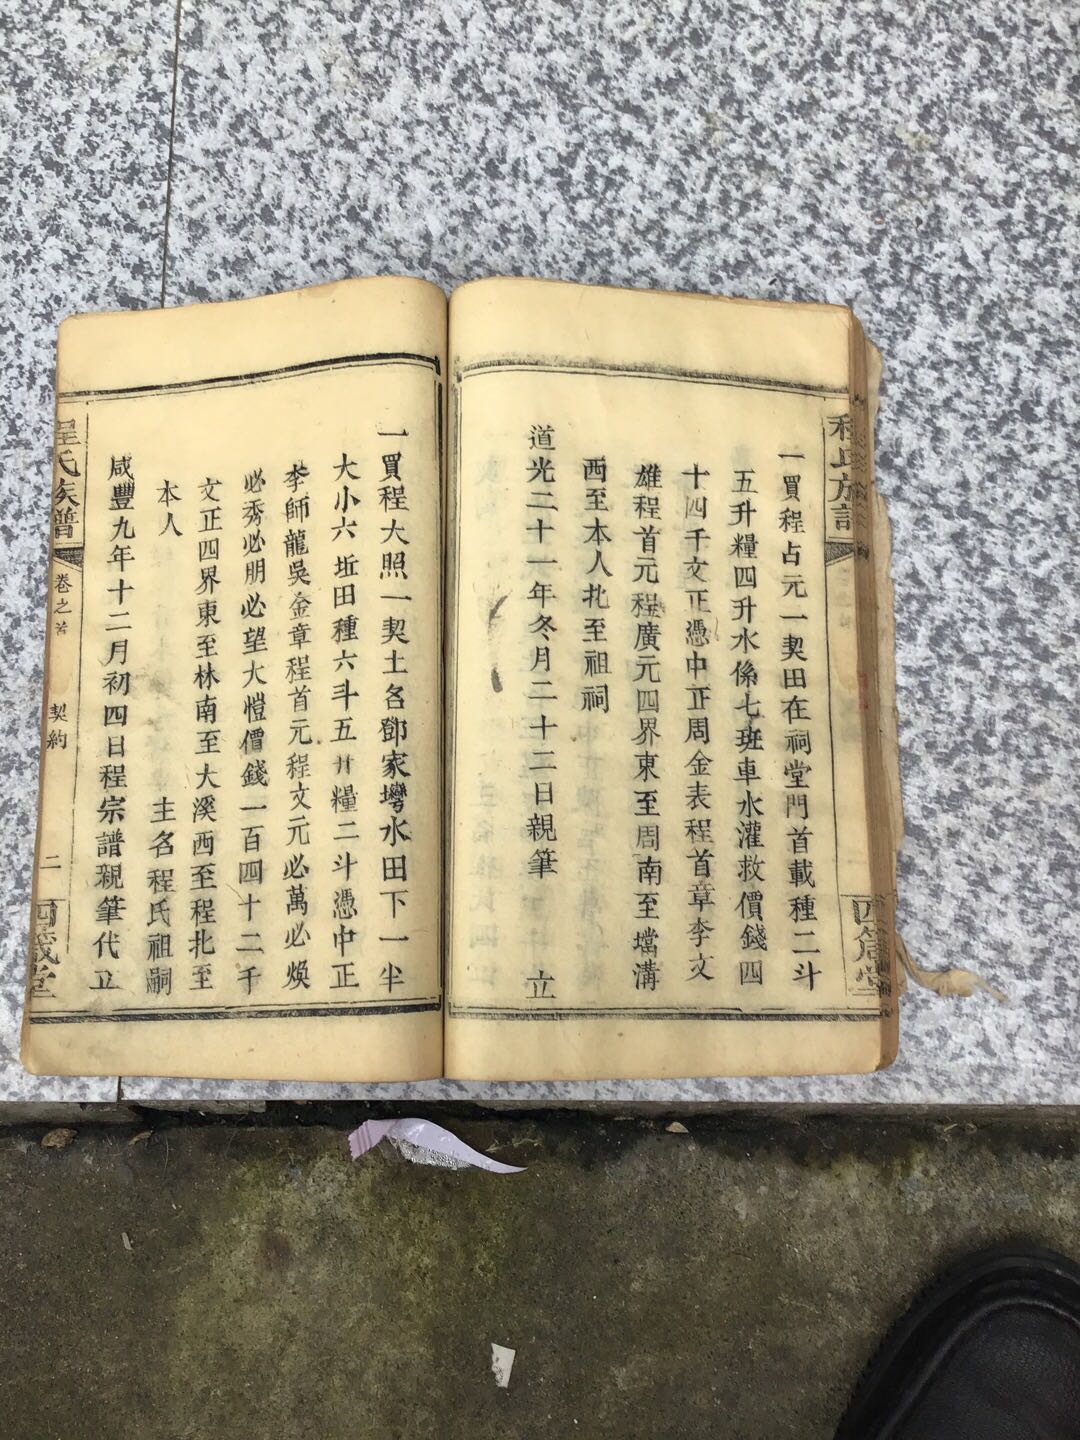 程氏族譜
一買程占元一契田在祠堂門首載種二斗
五升糧四升水係七班車水灌救價錢四
十四千文正憑中正周金表程首章李文
雄程首元程廣元四界東至周南至壋溝
西至本人北至祖祠
道光二十一年冬月二十二日親筆 立
一買程大照一契土名鄧家灣水田下一半
大小六坵田種六斗五廾糧二斗憑中正
李師龍吳金章程首元程文元必萬必煥
必秀必朋必望大愷價錢一百四十二千
文正四界東至林南至大溪西至程北至
本人 主名程氏祖嗣
咸豐九年十二月初四日程宗譜親筆代立
程氏族譜
卷之
契約
二
四箴堂